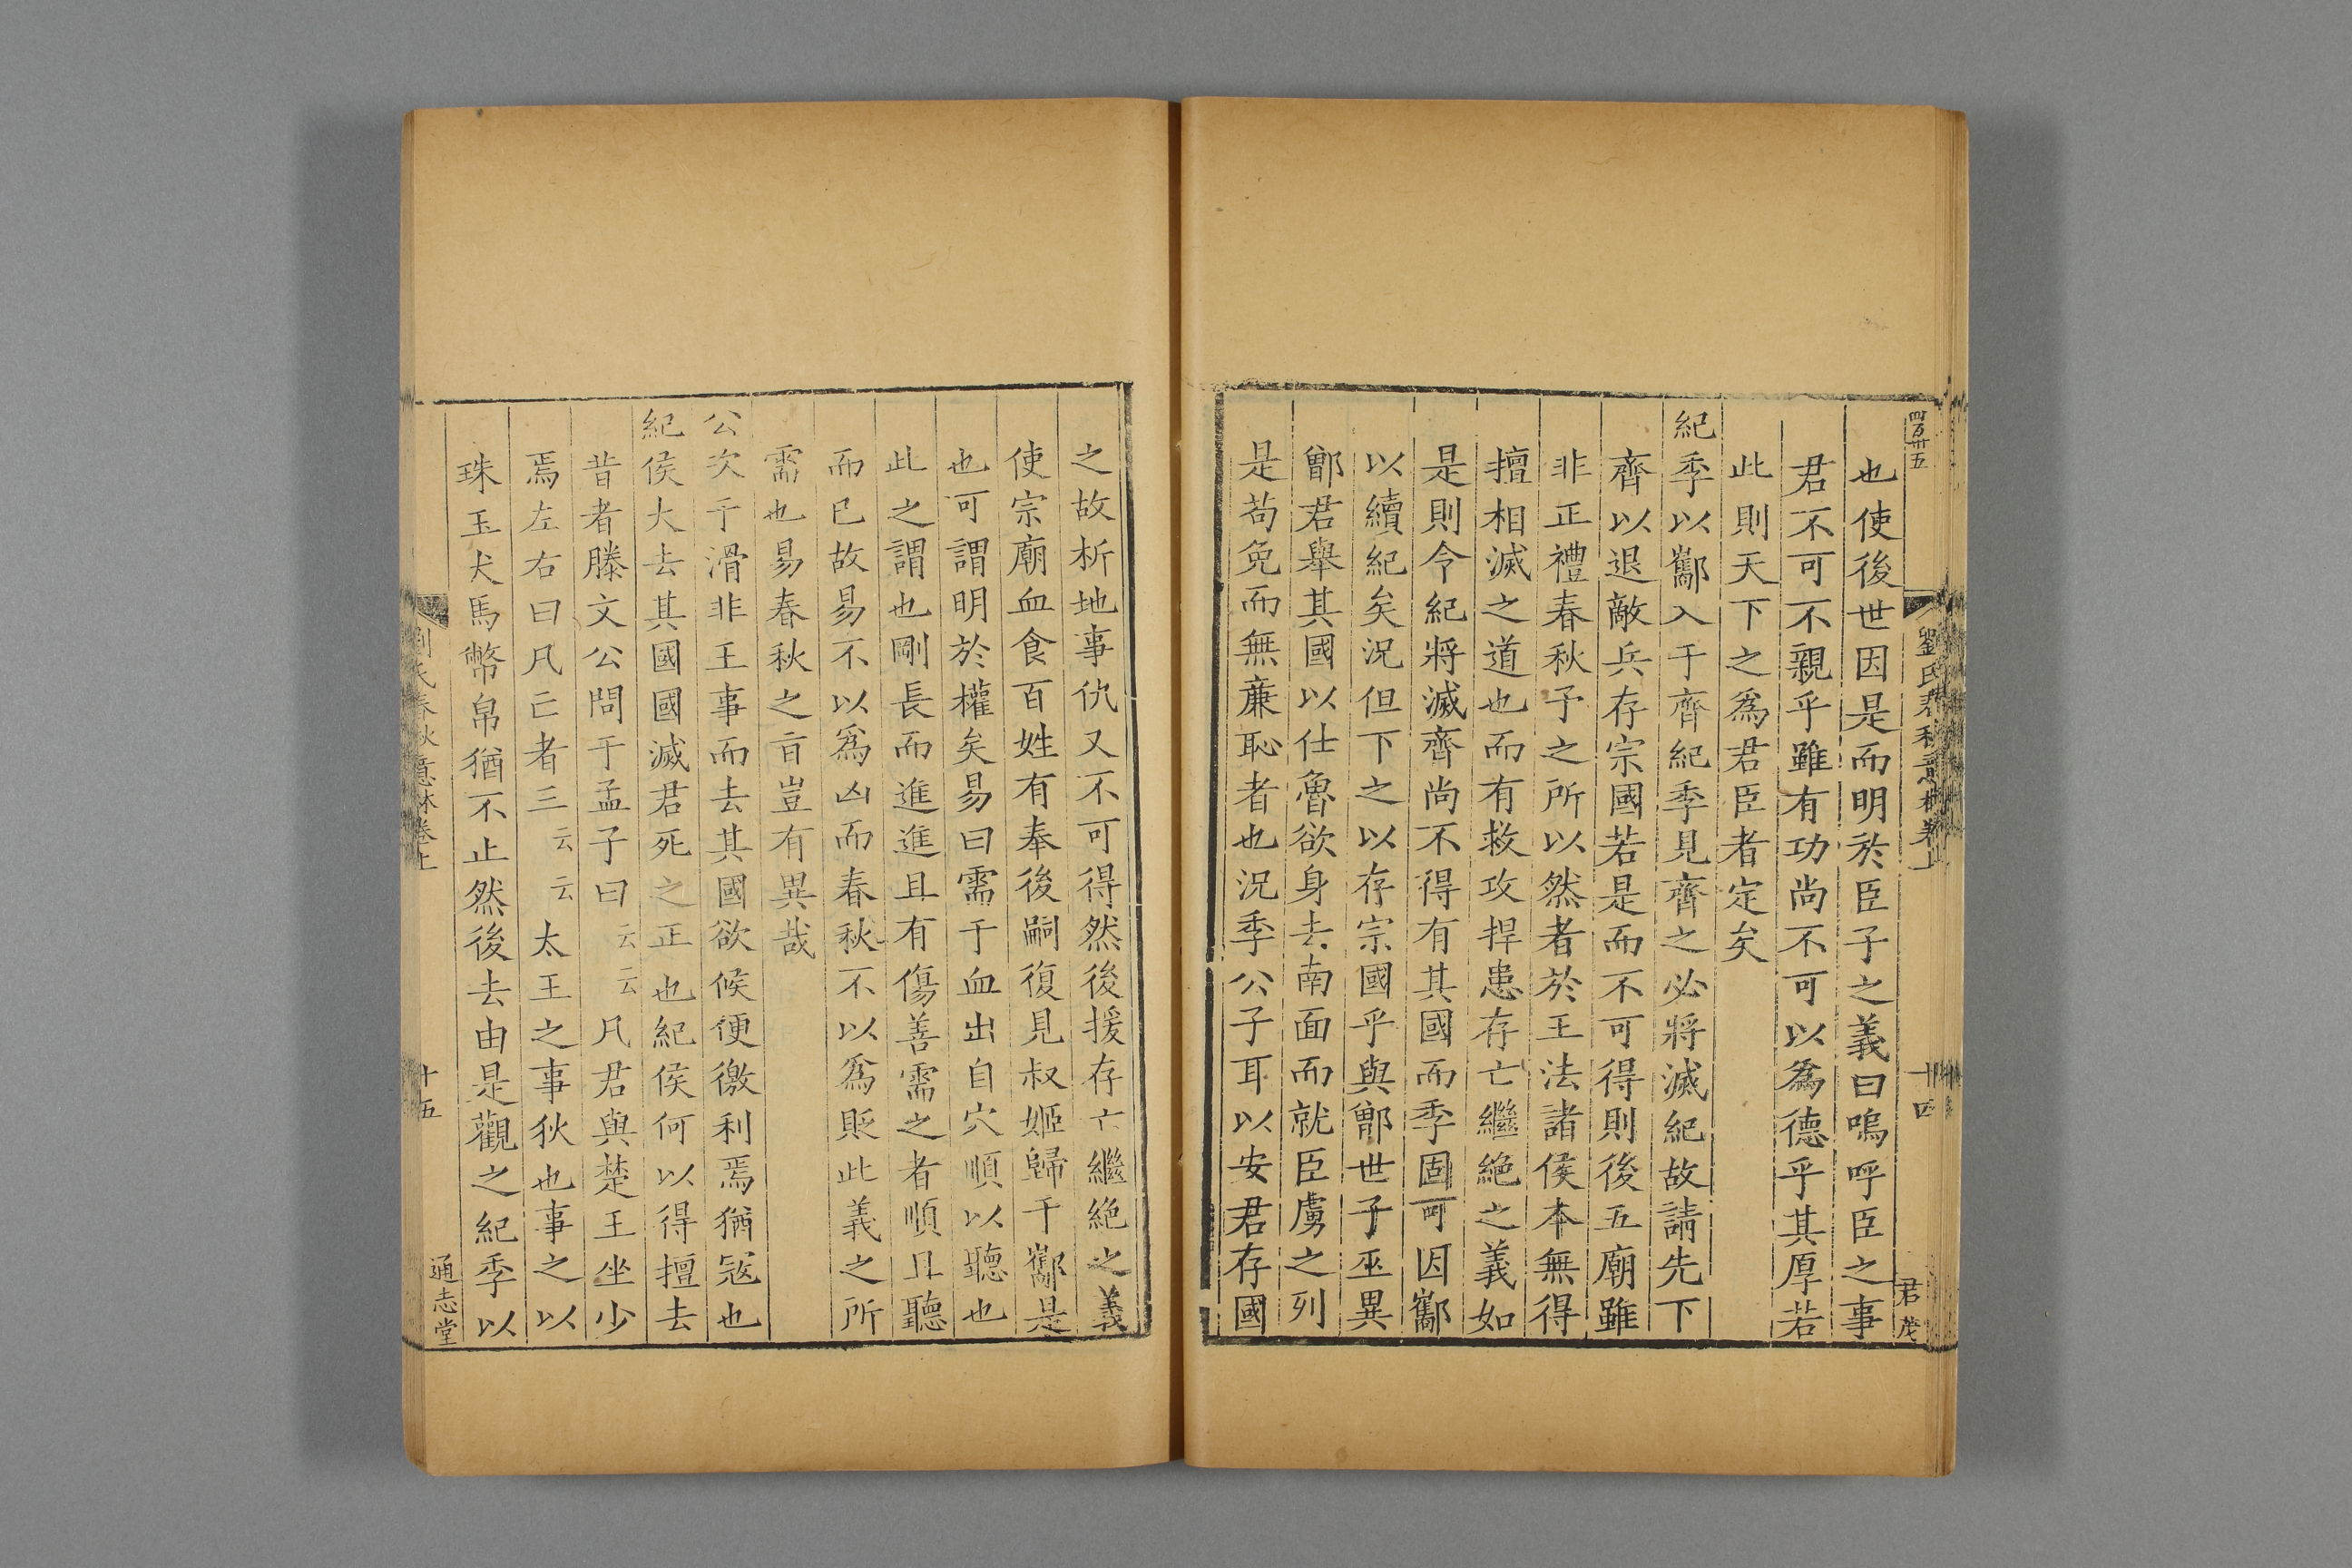 四百卅五
劉氏春秋意林卷上
十四
君茂
也使後世因是而明於臣子之義曰嗚呼臣之事
君不可不親乎雖有功尚不可以爲德乎其厚若
此則天下之爲君臣者定矣
紀季以酅入于齊紀季見齊之必將滅紀故請先下
齊以退敵兵存宗國若是而不可得則後五廟雖
非正禮春秋予之所以然者於王法諸侯本無得
擅相滅之道也而有救攻捍患存亡繼絶之義如
是則令紀將滅齊尚不得有其國而季固可因酅
以續紀矣況但下之以存宗國乎與鄫世子巫異
鄫君舉其國以仕魯欲身去南面而就臣虜之列
是苟免而無廉恥者也況季公子耳以安君存國
之故析地事仇又不可得然後援存亡繼絶之義
使宗廟血食百姓有奉後嗣復見叔姬歸于酅是
也可謂明於權矣易曰需于血出自穴順以聽也
此之謂也剛長而進進且有傷善需之者順且聽
而已故易不以爲凶而春秋不以爲貶此義之所
需也易春秋之㫖豈有異哉
公次于滑非王事而去其國欲候便徼利焉猶寇也
紀侯大去其國國滅君死之正也紀侯何以得擅去
昔者滕文公問于孟子曰云云凡君與楚王坐少
焉左右曰凡亡者三云云太王之事狄也事之以
珠玉犬馬幣帛猶不止然後去由是觀之紀季以
劉氏春秋意林卷上
十五
通志堂